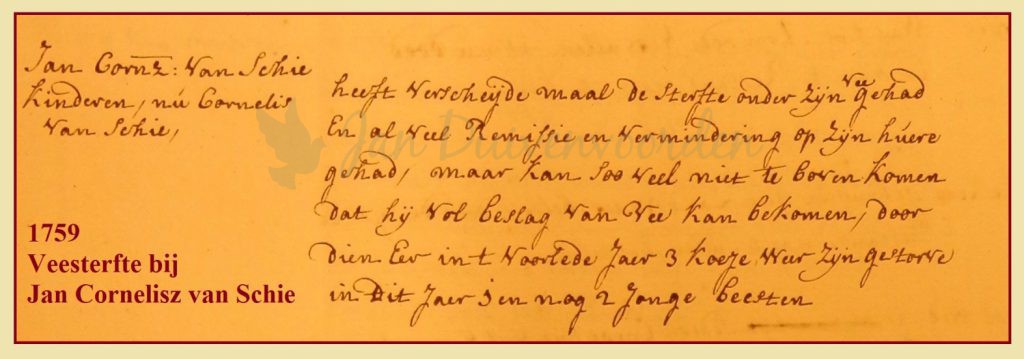 Jan Cornz: Van Schie
kinderen, nú Cornelis
Van Schie,
heeft Verscheijde maal de sterfte onder Zijn Vee gehad
En al Veel Remissie en Vermindering op Zijn húere
gehad, maar kan Soo Veel niet te boven komen
dat hij Vol beslag Van Vee kan bekomen, door
dien Eer int Voorlede Jaer 3 koeze Weer Zijn gestorve
in Dit Jaer 1 en nog 2 Jonge beesten
Jan Duivenvoorden
1759
Veesterfte bij
Jan Cornelisz van Schie